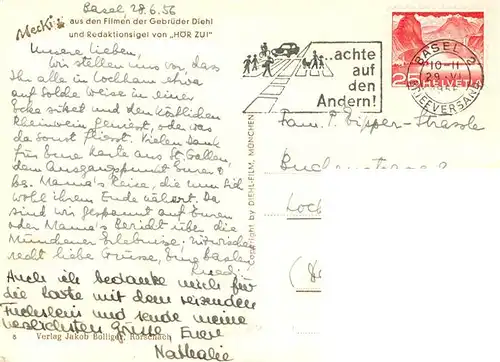 Basel 28.6.56
Mecki
aus den Filmen der Gebrüder Diehl
und Redaktionsigel von „HÖR ZU!"
Unsere Lieben,
Wir stellen uns vor dass
Ihr alle in Lochham etwa
auf solche Weise in einer
Ecke sitzet und den köstlichen
Rheinwein geniesst, oder was
da sonst fliesst. Vielen Dank
für Eure Karte aus St. Gallen,
dem Ausgangspunkt Eurer &
bzw. Mama's Reise, die nun
wohl ihrem Ende nähert. Da
sind wir gespannt auf Euren
oder Mama's Bericht über die
Münchener Erlebnisse. Inzwischen
recht liebe Grüsse, Eure Basler
Ruedi
Auch ich bedanke mich für
die Karte mit dem reizenden
und sende meine
herzlichsten Grüsse Eure
Nathalie
8 Verlag Jakob Bolliger, Rorschach
Copyright by DIEHL-FILM, MÜNCHEN
...achte
auf
den
Andern!
BASEL 2
10-11
29. VI.
BRIEFVERSAND
25 HELVETIA
Fam. P. Sipper-Strassle
Loch